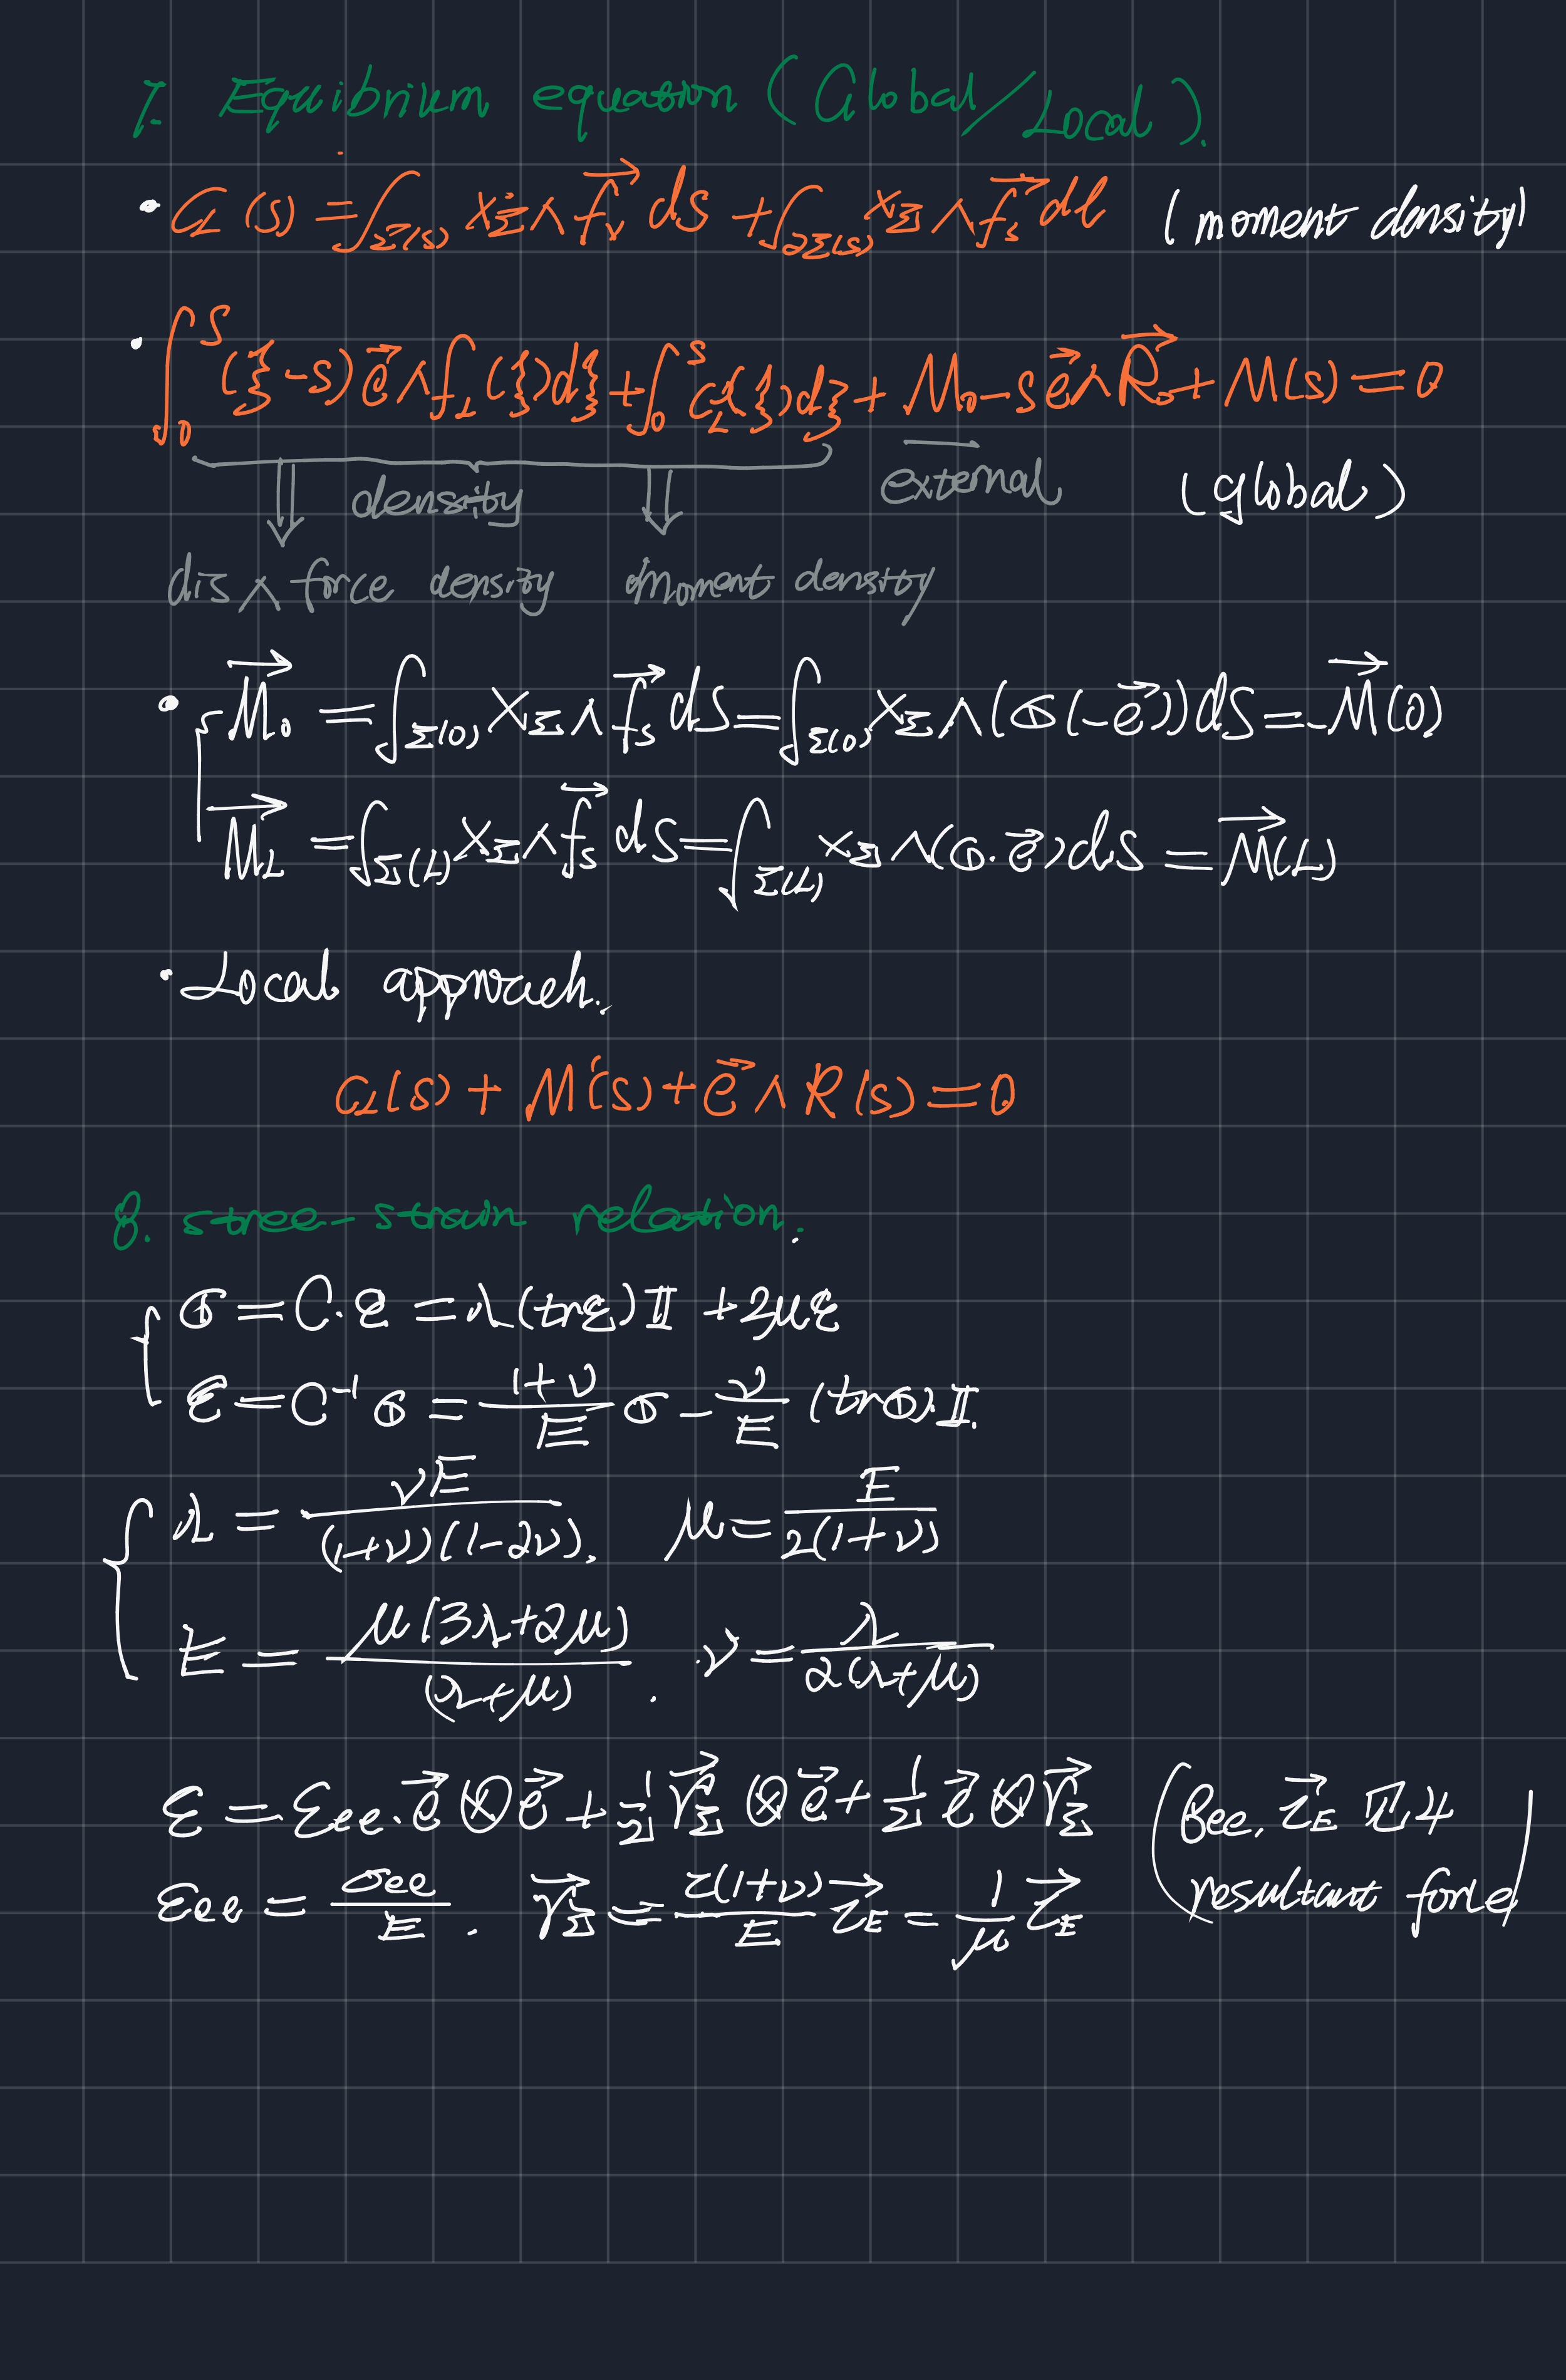 7. Equibrium equation (Global/Local).
• C_L(s) = ∫_{Σ(s)} x_Σ ∧ f_v→ dS + ∫_{∂Σ(s)} x_Σ ∧ f_s→ dl (moment density)
• ∫_0^S (ξ-s) e→ ∧ f_L(ξ)dξ + ∫_0^s C_L(ξ)dξ + M_0 - s e→ ∧ R_0→ + M(s) = 0
density external (global)
dis ∧ force density moment density
• { M_0→ = ∫_{Σ(0)} x_Σ ∧ f_s→ dS = ∫_{Σ(0)} x_Σ ∧ (σ(-e→))dS = -M→(0)
M_L→ = ∫_{Σ(L)} x_Σ ∧ f_s→ dS = ∫_{Σ(L)} x_Σ ∧ (σ·e→)dS = M→(L)
• Local approach.
C_L(s) + M'(s) + e→ ∧ R(s) = 0
8. stree-strain relation.
{ σ = C·ε = λ(trε)𝕀 + 2με
ε = C⁻¹σ = (1+ν)/E σ - ν/E (trσ)𝕀.
{ λ = νE/((1+ν)(1-2ν)). μ = E/(2(1+ν))
E = μ(3λ+2μ)/(λ+μ). ν = λ/(2(λ+μ))
ε = ε_ee·e→⊗e→ + 1/2 γ_Σ→⊗e→ + 1/2 e→⊗γ_Σ→ (σ_ee, τ_Σ→ 4
ε_ee = σ_ee/E. γ_Σ→ = 2(1+ν)/E τ_Σ→ = 1/μ τ_Σ→ resultant force)